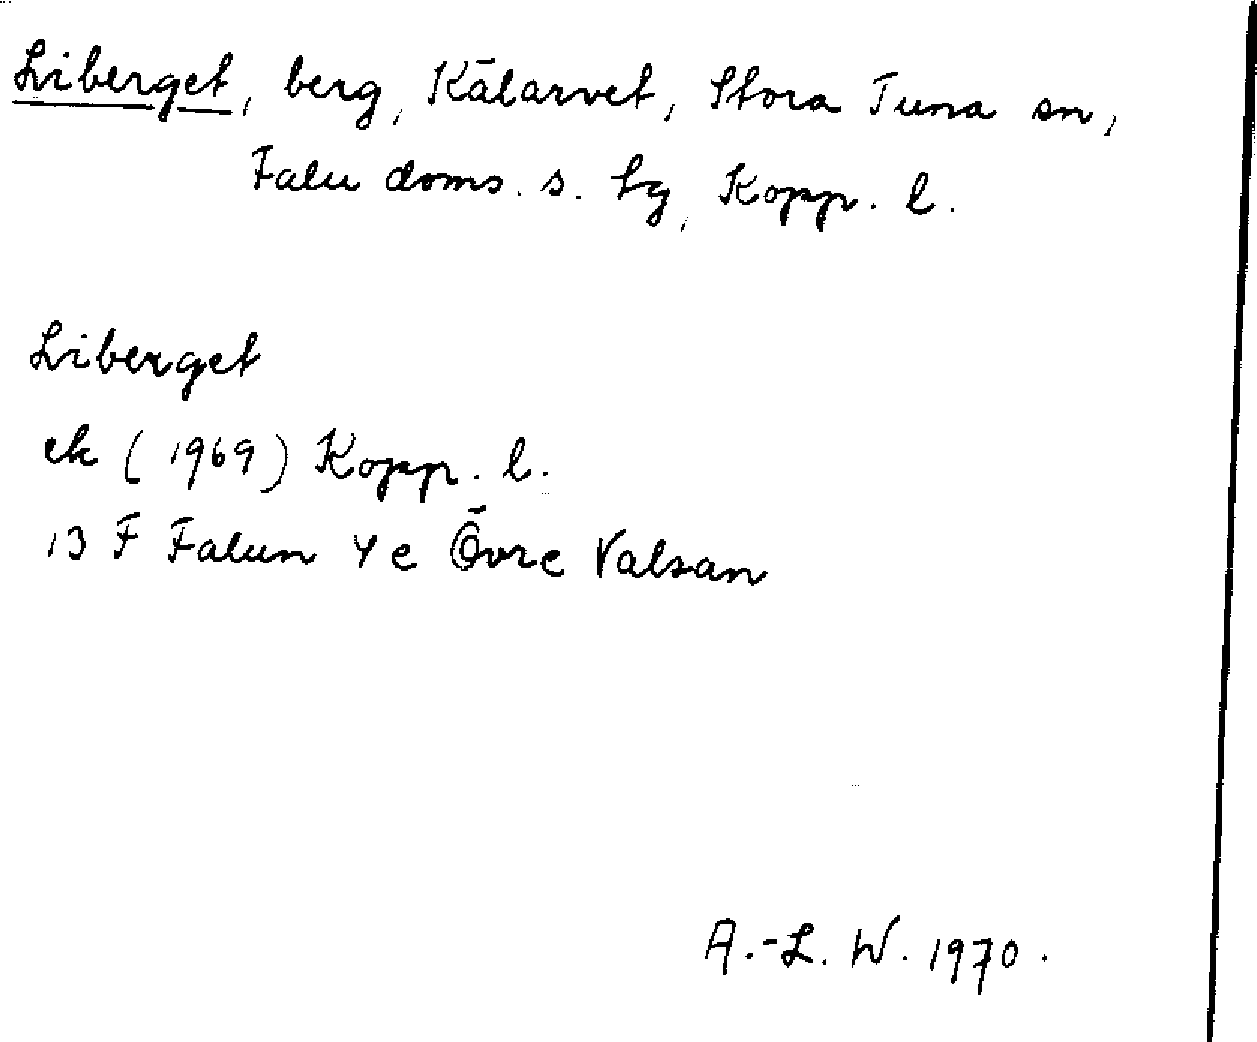 Liberget, berg, Kålarvet, Stora Tuna sn,
Falu doms. s. tg, Kopp. l.
Liberget
ek (1969) Kopp. l.
13 F Falun 4 e Övre Valsan
A.-L. W. 1970.